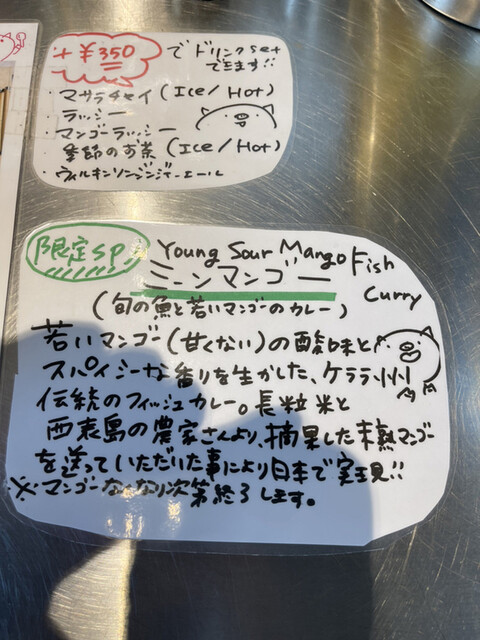 +¥350 でドリンクset
できます!!
・マサラチャイ(Ice/Hot)
・ラッシー
・マンゴーラッシー
季節のお茶(Ice/Hot)
・ウィルキンソンジンジャーエール
限定SP Young Sour Mango Fish
ミーンマンゴー Curry
(旬の魚と若いマンゴーのカレー)
若いマンゴー(甘くない)の酸味と
スパイシーな香りを生かした、ケララ州
伝統のフィッシュカレー。長粒米と
西表島の農家さんより、摘果した未熟マンゴー
を送っていただいた事により日本で実現!!
※マンゴーなくなり次第終了します。